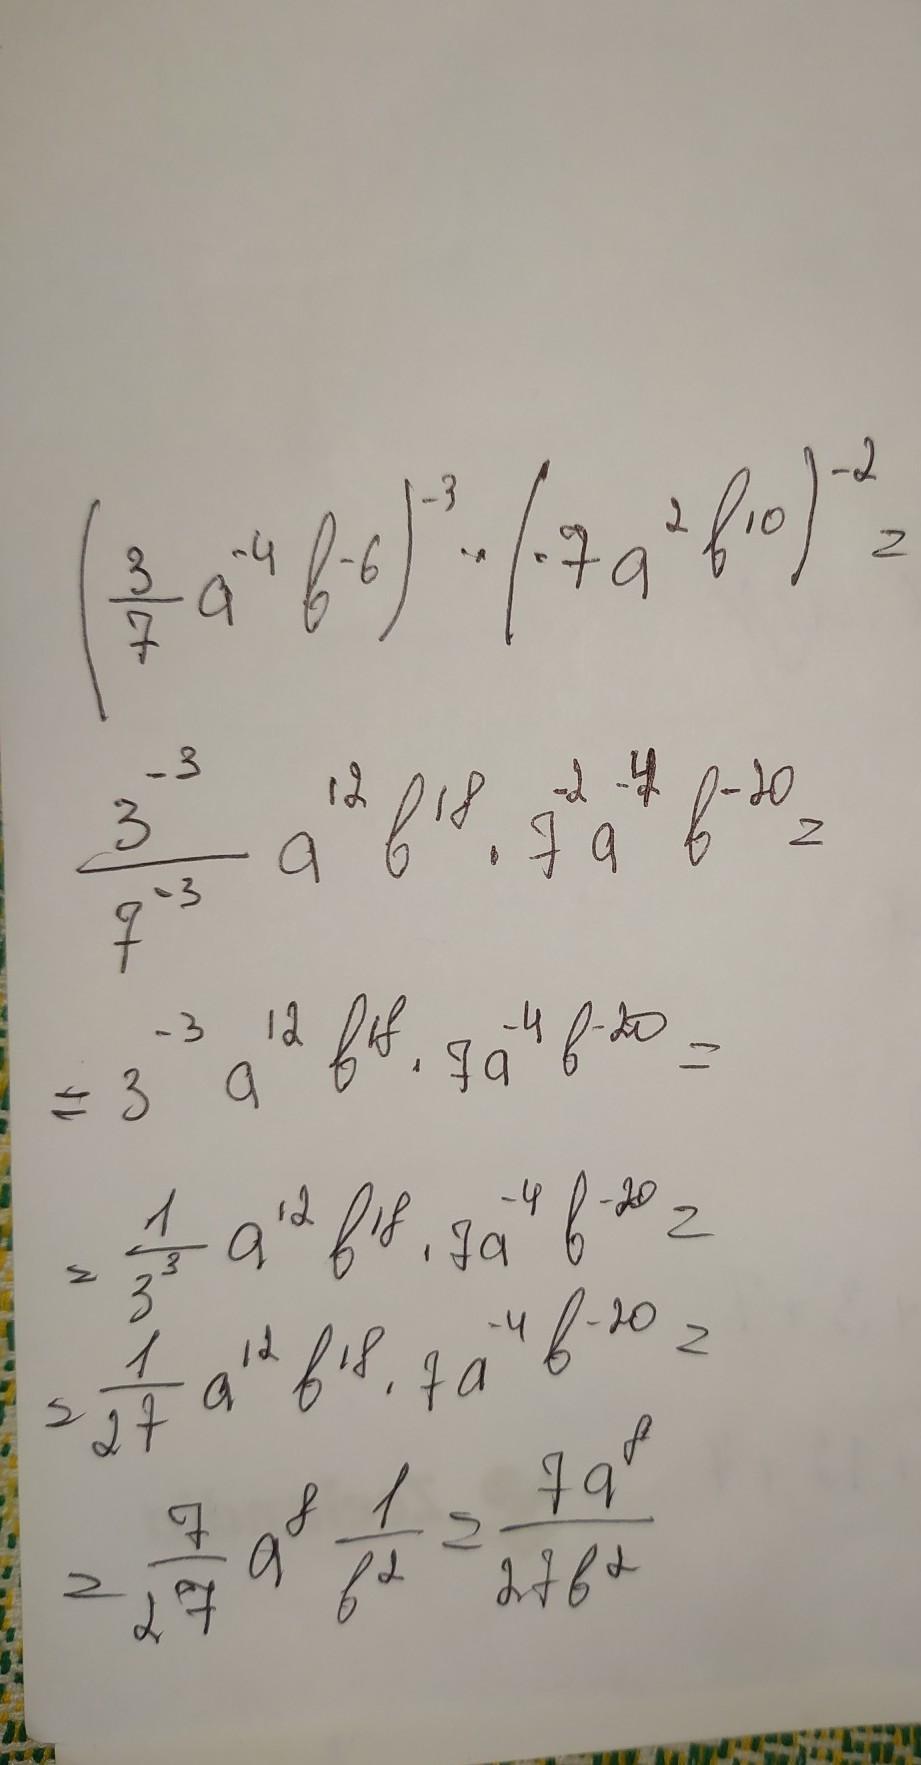 (3/7 a^-4 b^-6)^-3 · (-7a^2 b^10)^-2 =
3^-3/7^-3 a^12 b^18 · 7^-2 a^-4 b^-20 =
= 3^-3 a^12 b^18 · 7a^-4 b^-20 =
= 1/3^3 a^12 b^18 · 7a^-4 b^-20 =
= 1/27 a^12 b^18 · 7a^-4 b^-20 =
= 7/27 a^8 1/b^2 = 7a^8/27b^2